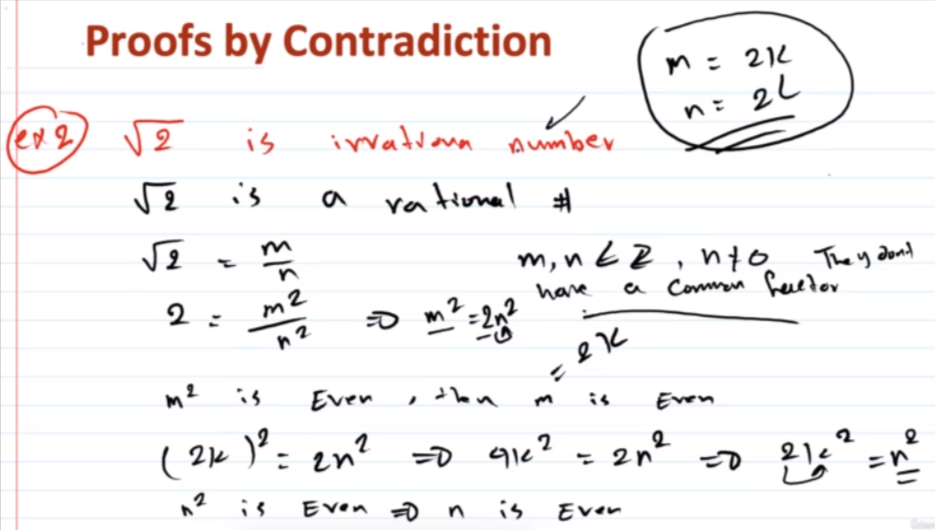 Proofs by Contradiction
m = 2k
n = 2L
ex2 √2 is irrationa number
√2 is a rational #
√2 = m/n m, n ∈ Z, n ≠ 0 They don't
have a common factor
2 = m²/n² ⇒ m² = 2n²
= 2k
m² is Even, then m is Even
(2k)² = 2n² ⇒ 4k² = 2n² ⇒ 2k² = n²
n² is Even ⇒ n is Even